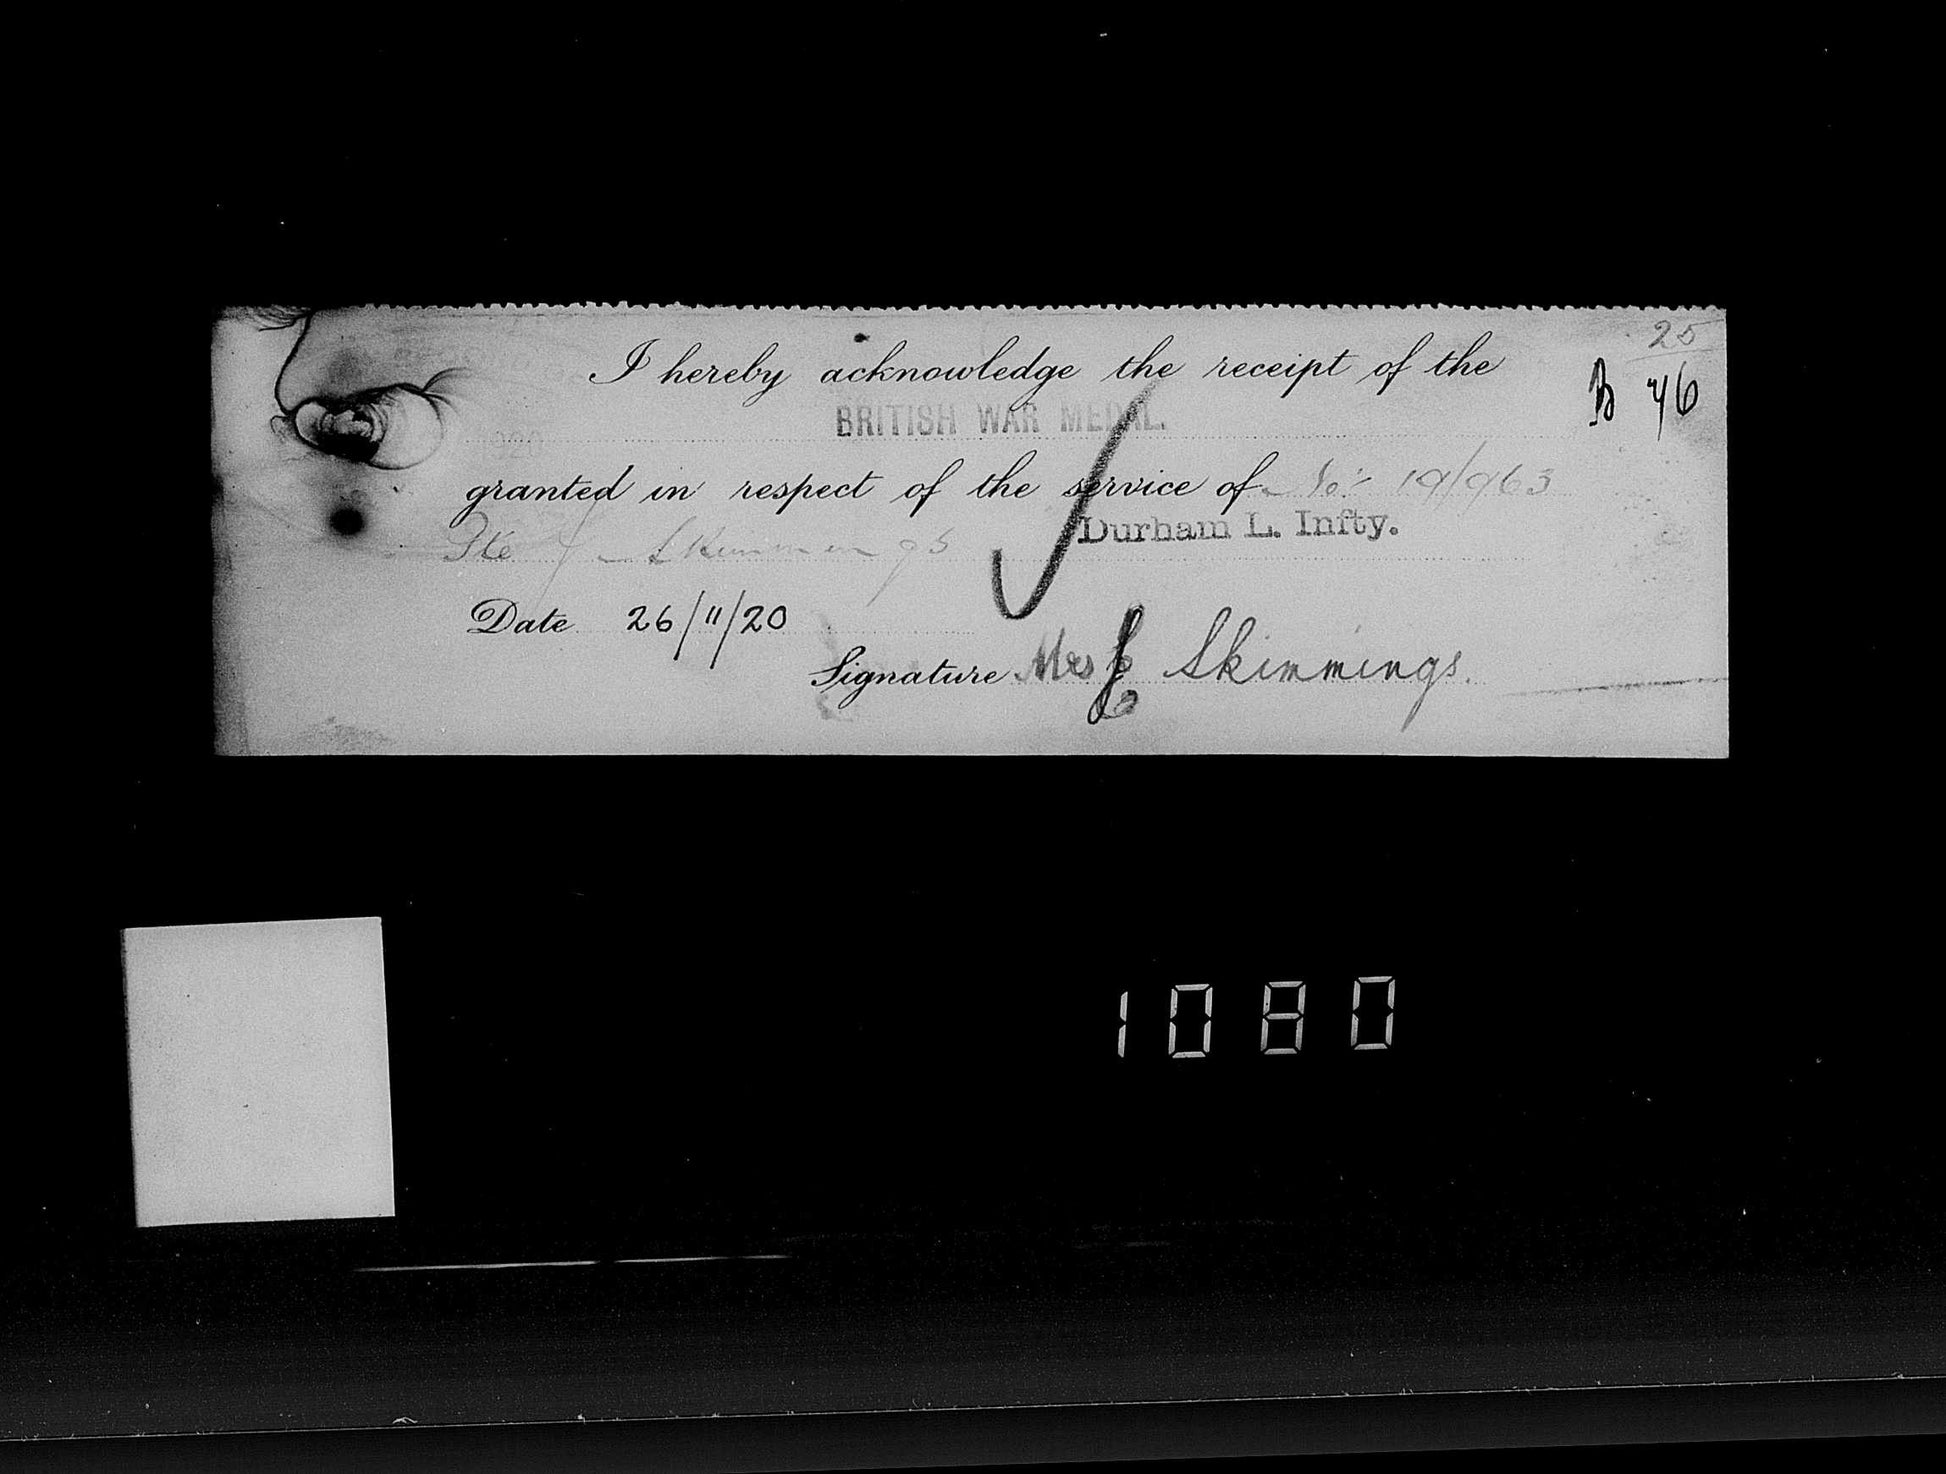 25
I hereby acknowledge the receipt of the
B 46
BRITISH WAR MEDAL.
granted in respect of the service of No: 19/963
Pte J Skimmings Durham L. Infty.
Date 26/11/20
Signature Mrs Skimmings.
1080